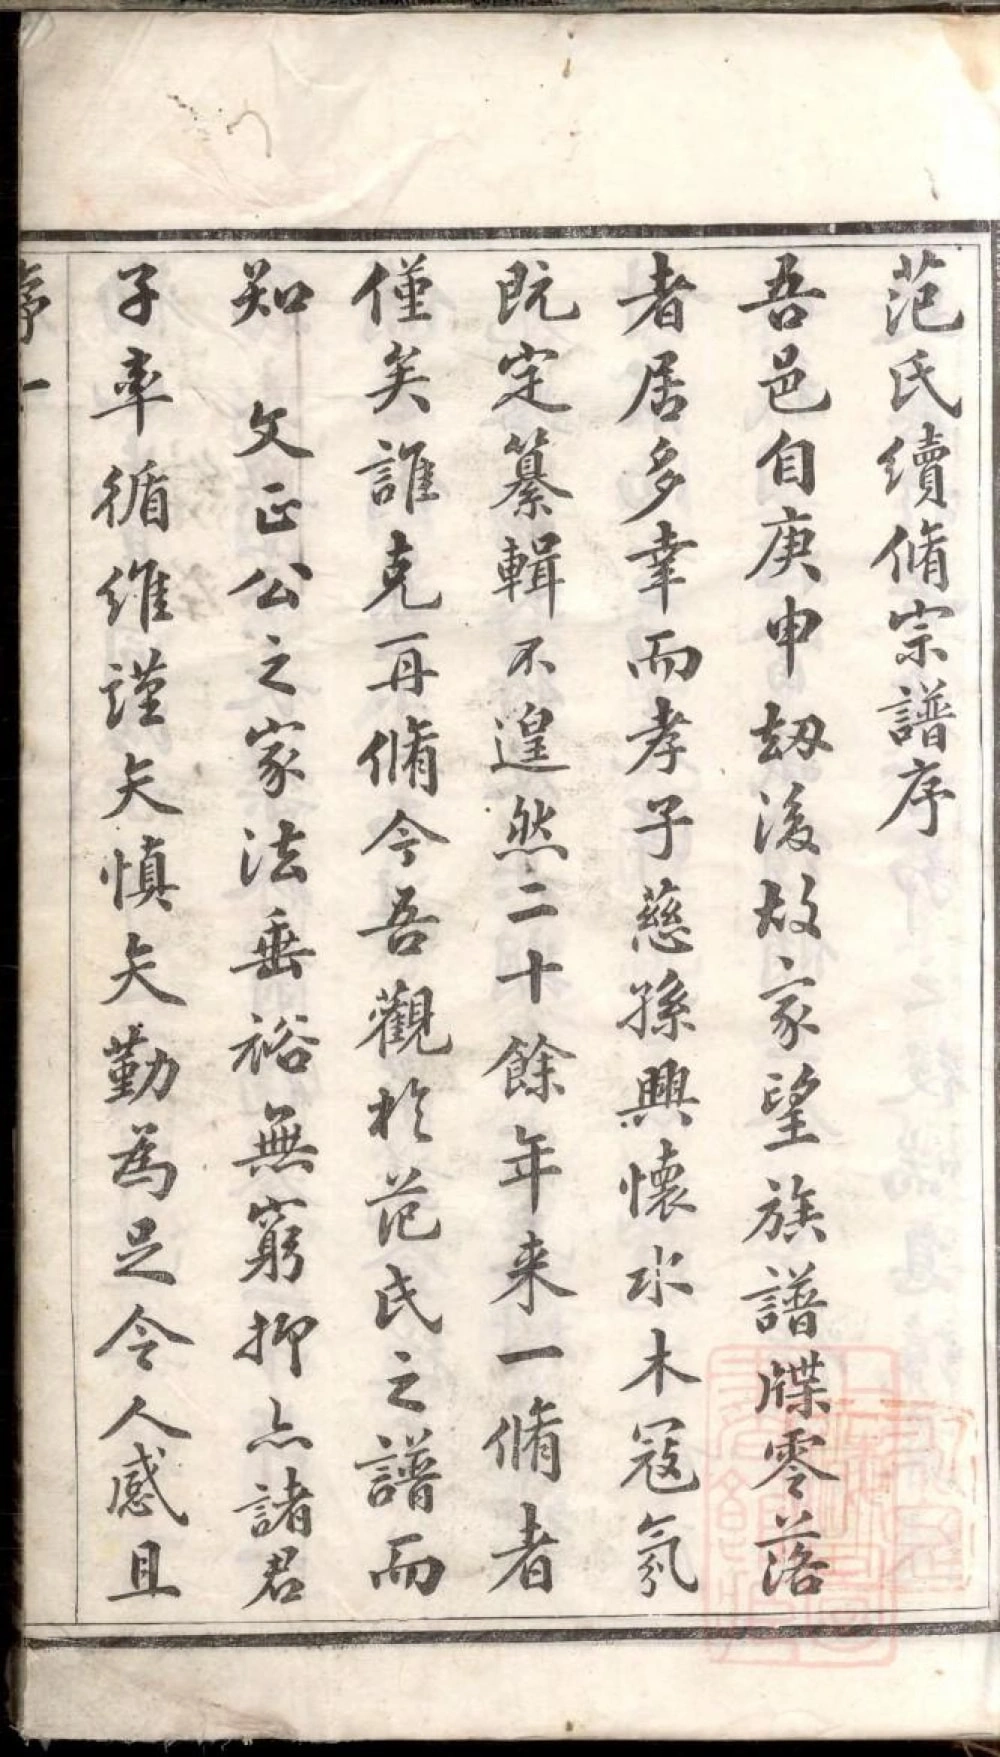 范氏續脩宗譜序
吾邑自庚申劫後故家望族譜牒零落
者居多幸而孝子慈孫興懷水木寇氛
既定纂輯不遑然二十餘年来一脩者
僅矣誰克再脩今吾觀於范氏之譜而
知　文正公之家法垂裕無窮抑亦諸君
子率循維謹矢慎矢勤為足令人感且
序一